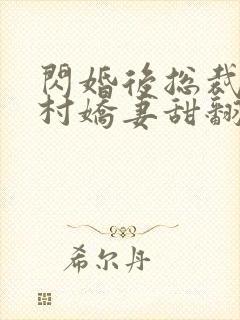 閃婚後总裁
村嬌妻甜翻
希尔丹